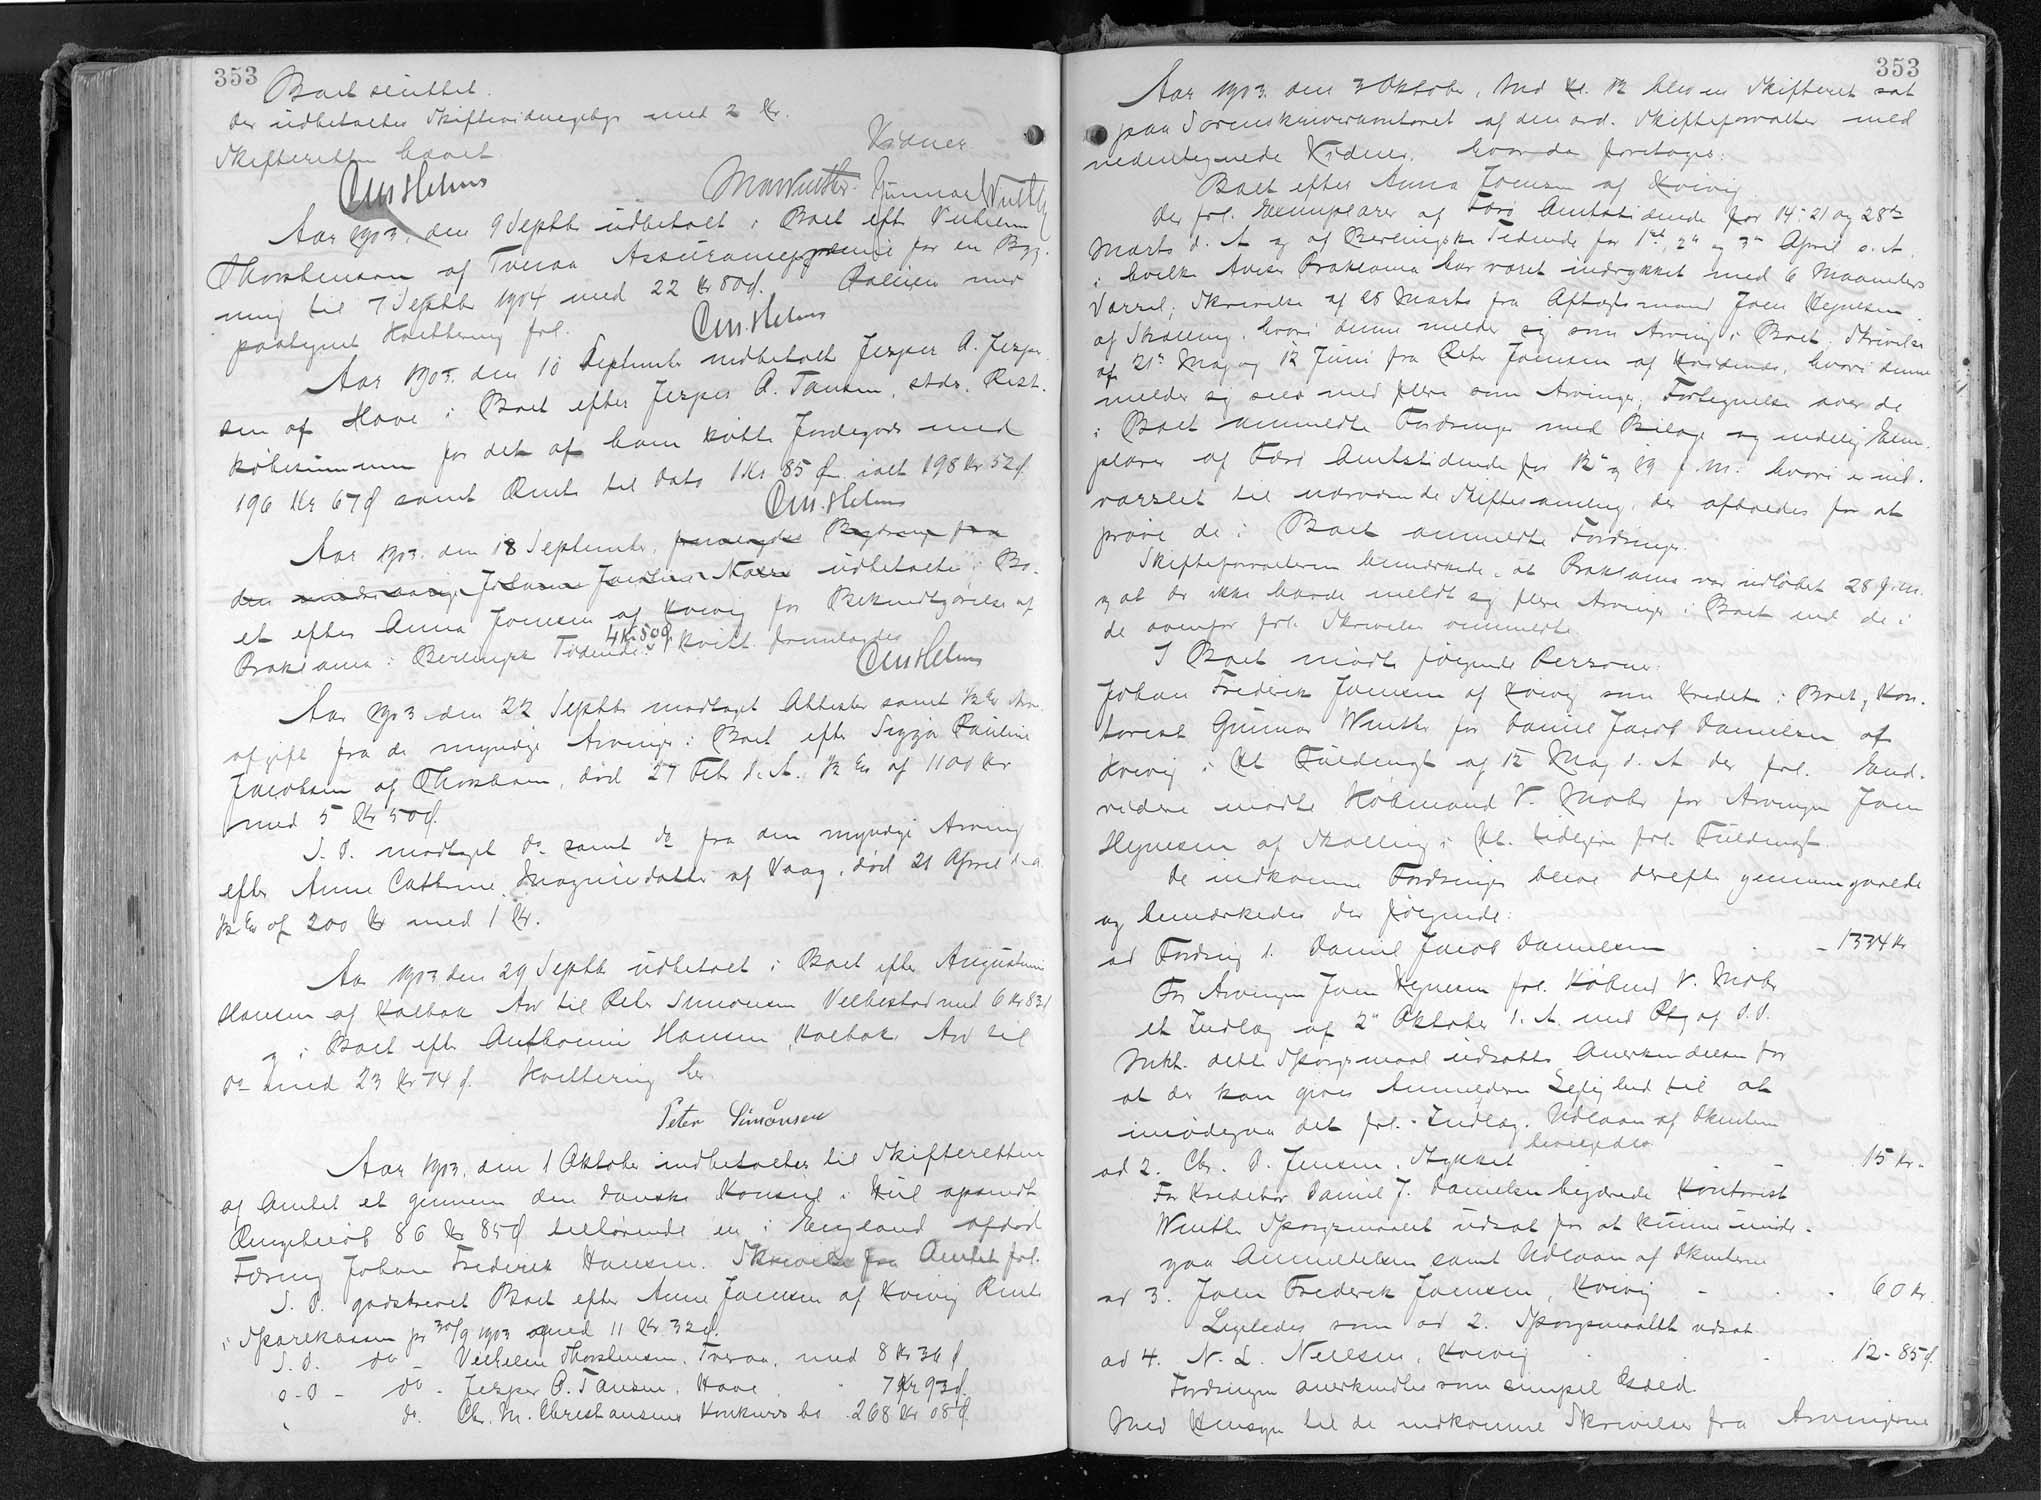 353
Boet sluttet.
Der udbetaltes Skiftevidnegebyr med 2 Kr.
Skifteretten hævet.
Vidner
Aar 1903, den 9 Septbr udbetalt i Boet eft Vilhelm
Thorsteinson af Tveraa Assurancepræmie for en Byg-
ning til 7 Septbr 1904 med 22 Kr 80 Ø. Policen med
paategnet Kvittering frl.
Aar 1903. den 10 Septembr indbetalt Jesper A. Jesper-
sen af Hove i Boet efter Jesper A. Tausen, stds. Rest.
købesummen for det af ham købte Jordegods med
196 Kr 67 Ø samt Rente til Dato 1 Kr 85 Ø ialt 198 Kr 52 Ø
Aar 1903. den 18 September, fremlagdes fra
den mindreaarige udbetalte i Bo-
et efter Anna Joensen af Kvivig for Bekendtgørelse af
Proklama i Berlingske Tidende 4 Kr 50 Ø, Kvitt. fremlagdes
Aar 1903 den 22 Septbr modtaget Attester samt Arve-
afgift fra de myndige Arvinger i Boet efter Sigga Pauline
Jacobsen af Thorshavn, død 27 Febr d. A. af 1100 Kr
med 5 Kr 50 Ø.
S. D. modtaget do samt do fra den myndige Arving
efter Anne Cathrine Magnusdatter af Vaag, død 21 April d. A.
af 200 Kr med 1 Kr.
Aar 1903 den 29 Septbr udbetalt i Boet efter Augustinus
Hansen af Kolbak Arv til Peter Simonsen Velbestad med 6 Kr 83 Ø
og i Boet eft Hansen, Kolbak Arv til
do med 23 Kr 74 Ø. Kvittering her
Peter Simonsen
Aar 1903, den 1 Oktobr indbetaltes til Skifteretten
af Amtet et gennem den danske Konsul i Hull opsendt
Pengebeløb 86 Kr 85 Ø tilhørende en i England afdød
Færing Johan Frederik Hansen. Skrivelse fra Amtet frl.
S. D. godskrevet Boet efter Anne Joensen af Kvivig Rente
i Sparekassen pr 30/9 1903 med 11 Kr 32 Ø.
S. D. do - Vilhelm Thorsteinson, Tveraa, med 8 Kr 36 Ø
S - D - do - Jesper A. Tausen, Hove - 7 Kr 93 Ø.
do. Ch. M. Christiansens Konkursbo - 268 Kr 08 Ø
353
Aar 1903. den 3 Oktobr, Md Kl. 12 blev en Skifteret sat
paa Sorenskriverkontoret af den ord. Skifteforvalter med
undertegnede Vidner, hvor da foretoges:
Boet efter Anna Joensen af Kvivig
Der frl. Exemplarer af Færø Amtstidende for 14. 21 og 28de
Marts d. A og af Berlingske Tidende for 1ste, 2den og 3die April d. A.
i hvilke Aviser Proklama har været indrykket med 6 Maaneders
Varsel; Skrivelse af 28 Marts fra Aftægtsmand Joen Hejnesen
af Skælling, hvori denne melder sig som Arving i Boet; Skrivelse
af 21de Maj og 12 Juni fra Peter Joensen af , hvori denne
melder sig selv med flere som Arvinger, Fortegnelse over de
i Boet anmeldte Fordringer med Bilage og endelig Exem-
plarer af Færø Amtstidende for 12te og 19 f. M. hvori er ind-
varslet til nærværende Skiftesamling, der afholdes for at
prøve de i Boet anmeldte Fordringer.
Skifteforvalteren bemærkede, at Proklama var udløbet 28 f. M.
og at der ikke havde meldt sig flere Arvinger i Boet end de i
de ovenfor frl. Skrivelser anmeldte
I Boet mødte følgende Personer:
Johan Frederik Joensen af Kvivig som Kreditor i Boet, Kon-
torist Gunnar Winther for Daniel Jacob Danielsen af
Kvivig i Flt Fuldmagt af 12 Maj d. A der frl. End-
videre mødte Købmand V. Mohr for Arvingen Joen
Hejnesen af Skælling i Flt. tidligere frl. Fuldmagt.
De indkomne Fordringer blev derefter gennemgaaede
og bemærkedes der følgende:
ad Fordring 1. Daniel Jacob Danielsen - 1334 Kr
For Arvingen Joen Hejnesen frl. Købmd V. Mohr
et Indlæg af 2den Oktober d. A. med Bilag af S. D.
Mht. dette Spørgsmaal udsattes Anerkendelsen for
at der kan gives Anmelderen Lejlighed til at
imødegaa det frl. Indlæg. Udlaan af Dkmterne
bevilgedes
ad 2. Chr. D. Jensen, Stykket - 15 Kr.
For Kreditor Daniel J. Danielsen begærede Kontorist
Winther Spørgsmaalet udsat for at kunne imøde-
gaa Anmeldelsen samt Udlaan af Dkmterne
ad 3. Joen Frederik Joensen, Kvivig - 60 Kr.
Ligeledes som ad 2. Spørgsmaalet udsat
ad 4. N. L. Nielsen, Kvivig - 12 - 85 Ø.
Fordringen anerkendtes som simpel Gæld.
Med Hensyn til de indkomne Skrivelser fra Arvingerne